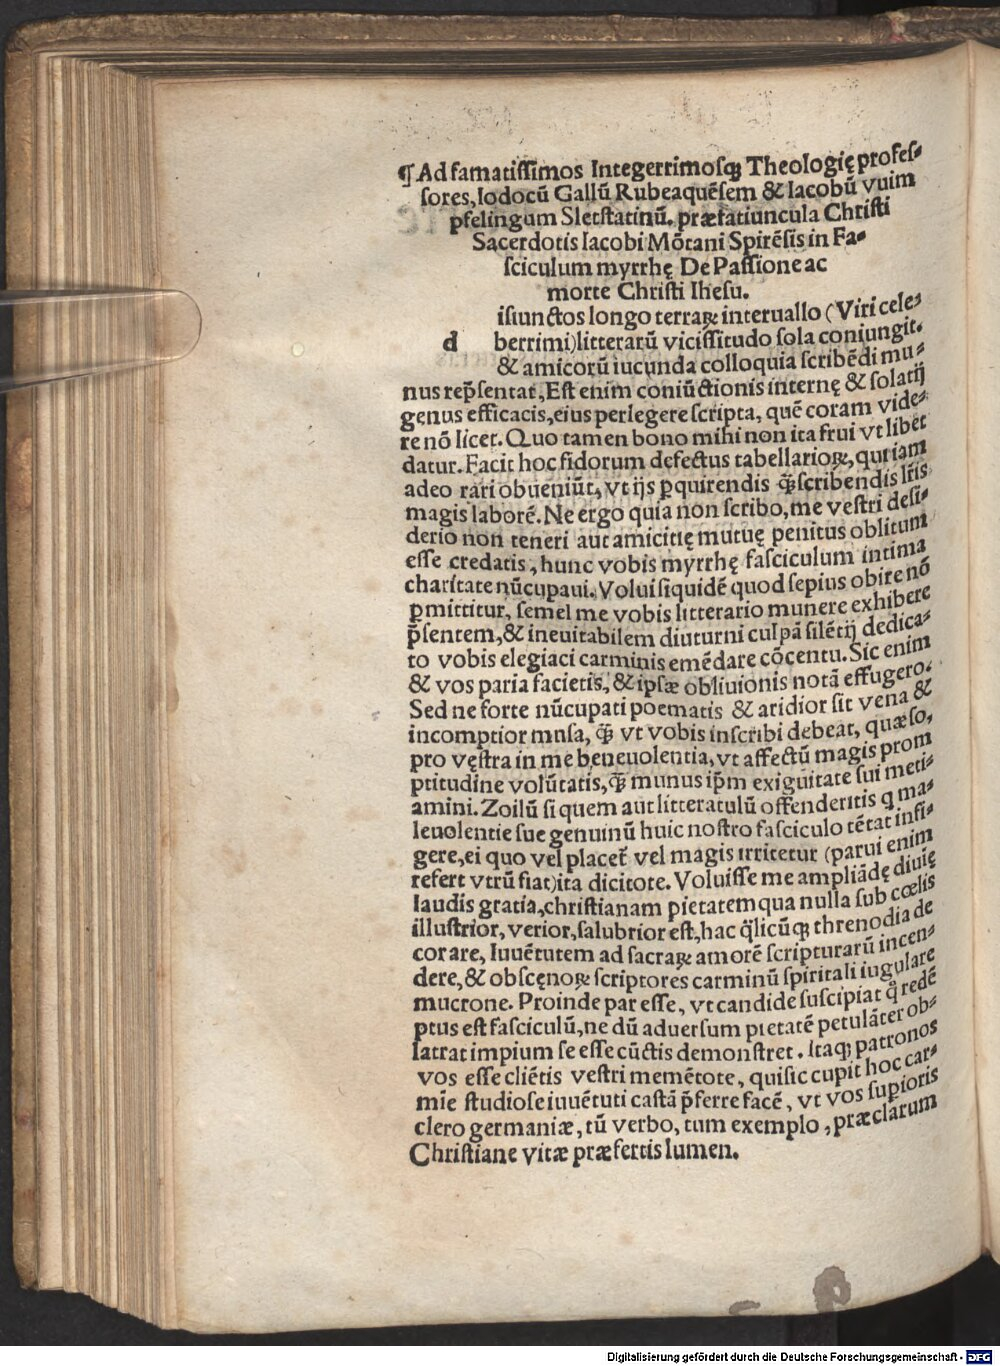 ¶ Ad famatissimos Integerrimosqꝫ Theologię profes⸗
sores, Iodocū Gallū Rubeaquēsem & Iacobū vuim
pfelingum Sletstatinū. præfatiuncula Christi
Sacerdotis Iacobi Mōtani Spirēsis in Fa⸗
sciculum myrrhę De Passione ac
morte Christi Ihesu.
isiunctos longo terraꝝ interuallo (Viri cele⸗
d berrimi) litterarū vicissitudo sola coniungit.
& amicorū iucunda colloquia scribēdi mu⸗
nus rep̄sentat, Est enim coniūctionis internę & solatij
genus efficacis, eius perlegere scripta, quē coram vide⸗
re nō licet. Quo tamen bono mihi non ita frui vt libet
datur. Facit hoc fidorum defectus tabellarioꝝ, qui iam
adeo rari obueniūt, vt ijs ꝑquirendis q̄ꝫ scribendis lr̄is
magis laborē. Ne ergo quia non scribo, me vestri desi⸗
derio non teneri aut amicitię mutuę penitus oblitum
esse credatis, hunc vobis myrrhę fasciculum intima
charitate nūcupaui. Volui siquidē quod sepius obire nō
ꝑmittitur, semel me vobis litterario munere exhibere
p̄sentem, & ineuitabilem diuturni culpā silētij dedica⸗
to vobis elegiaci carminis emēdare cōcentu. Sic enim
& vos paria facietis, & ipsæ obliuionis notā effugero.
Sed ne forte nūcupati poematis & aridior sit vena &
incomptior mnsa, q̄ꝫ vt vobis inscribi debeat, quæso,
pro vęstra in me beneuolentia, vt affectū magis prom
ptitudine volūtatis, q̄ꝫ munus ip̄m exiguitate sui meti⸗
amini. Zoilū si quem aut litteratulū offenderitis q ma⸗
leuolentie sue genuinū huic nostro fasciculo tētat infi⸗
gere, ei quo vel placet̄ vel magis irritetur (parui enim
refert vtrū fiat) ita dicitote. Voluisse me ampliādę diuię
laudis gratia, christianam pietatem qua nulla sub cœlis
illustrior, verior, salubrior est, hac q̄licūqꝫ threnodia de
corare, Iuuētutem ad sacraꝝ amorē scripturarū incen⸗
dere, & obscęnoꝝ scriptores carminū spiritali iugulare
mucrone. Proinde par esse, vt candide suscipiat q̄ redē
ptus est fasciculū, ne dū aduersum pietatē petulāter ob⸗
latrat impium se esse cūctis demonstret. Itaqꝫ patronos
vos esse cliētis vestri memētote, qui sic cupit hoc car⸗
mīe studiose iuuētuti castā p̄ferre facē, vt vos supioris
clero germaniæ, tū verbo, tum exemplo, præclarum
Christiane vitæ præfertis lumen.
Digitalisierung gefördert durch die Deutsche Forschungsgemeinschaft - DFG